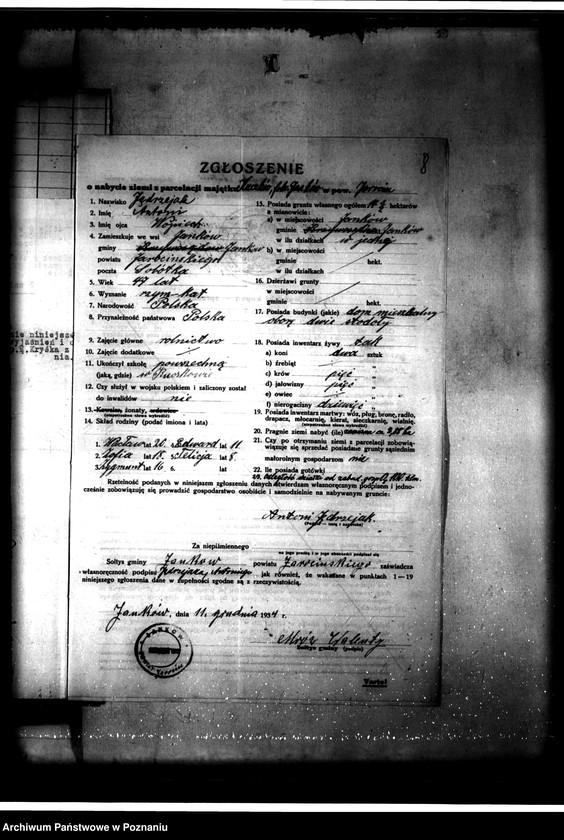 8
ZGŁOSZENIE
o nabycie ziemi z parcelacji majątku w pow. Jarocin
1. Nazwisko Jędrzejak
2. Imię Antoni
3. Imię ojca Wojciech
4. Zamieszkuje we wsi Jankow
gminy Jankow
powiatu Jarocińskiego
poczta Sobótka
5. Wiek 49 lat
6. Wyznanie rzym-kat
7. Narodowość Polska
8. Przynależność państwowa Polska
9. Zajęcie główne rolnictwo
10. Zajęcie dodatkowe /
11. Ukończył szkołę powrzechną
(jaką, gdzie) w
12. Czy służył w wojsku polskiem i zaliczony został
do inwalidów nie
13. Kawaler, żonaty, wdowiec
(niepotrzebne słowa wykreślić)
14. Skład rodziny (podać imiona i lata)
1. Wacław lat 20. 4. Edward lat 11.
2. Zofia lat 18. 5. Felicja lat 8.
3. Zygmunt lat 16 6. lat
15. Posiada gruntu własnego ogółem hektarów
a mianowicie:
a) w miejscowości Janków
gminie Janków
w ilu działkach w jednej
b) w miejscowości
gminie / hekt.
w ilu działkach
16. Dzierżawi grunty
w miejscowości
gminie / hekt.
17. Posiada budynki (jakie) dom mieszkalny
dwie stodoły
18. Posiada inwentarz żywy
a) koni dwa sztuk
b) źrebiąt / "
c) krów pięć "
d) jałowizny pięć "
e) owiec / "
f) nierogacizny dziewięć "
19. Posiada inwentarz martwy: wóz, pług, bronę, radło,
drapacz, młocarnię, kierat, sieczkarnię, wialnię.
(niepotrzebne słowa wykreślić)
20. Pragnie ziemi nabyć (ile)
21. Czy po otrzymaniu ziemi z parcelacji zobowią-
więzuje się sprzedać posiadane grunty sąsiednim
małorolnym gospodarzom nie
22. Ile posiada gotówki
Rzetelność podanych w niniejszem zgłoszeniu danych stwierdzam własnoręcznym podpisem i jedno-
cześnie zobowiązuję się prowadzić gospodarstwo osobiście i samodzielnie na nabywanym gruncie:
Antoni Jędrzejak.
(Podpis — imię i nazwisko)
Za niepiśmiennego
na jego prośbę i w jego obecności podpisał się
Sołtys gminy Jankow powiatu Jarocińskiego zaświadcza
własnoręczność podpisu Jędrzejaka Antoniego jak również, że wskazane w punktach 1—19
niniejszego zgłoszenia dane w zupełności zgodne są z rzeczywistością.
Jankow, dnia 11. grudnia 1934 r.
Mróz Walenty
Sołtys gminy (podpis)
Verte!
Archiwum Państwowe w Poznaniu